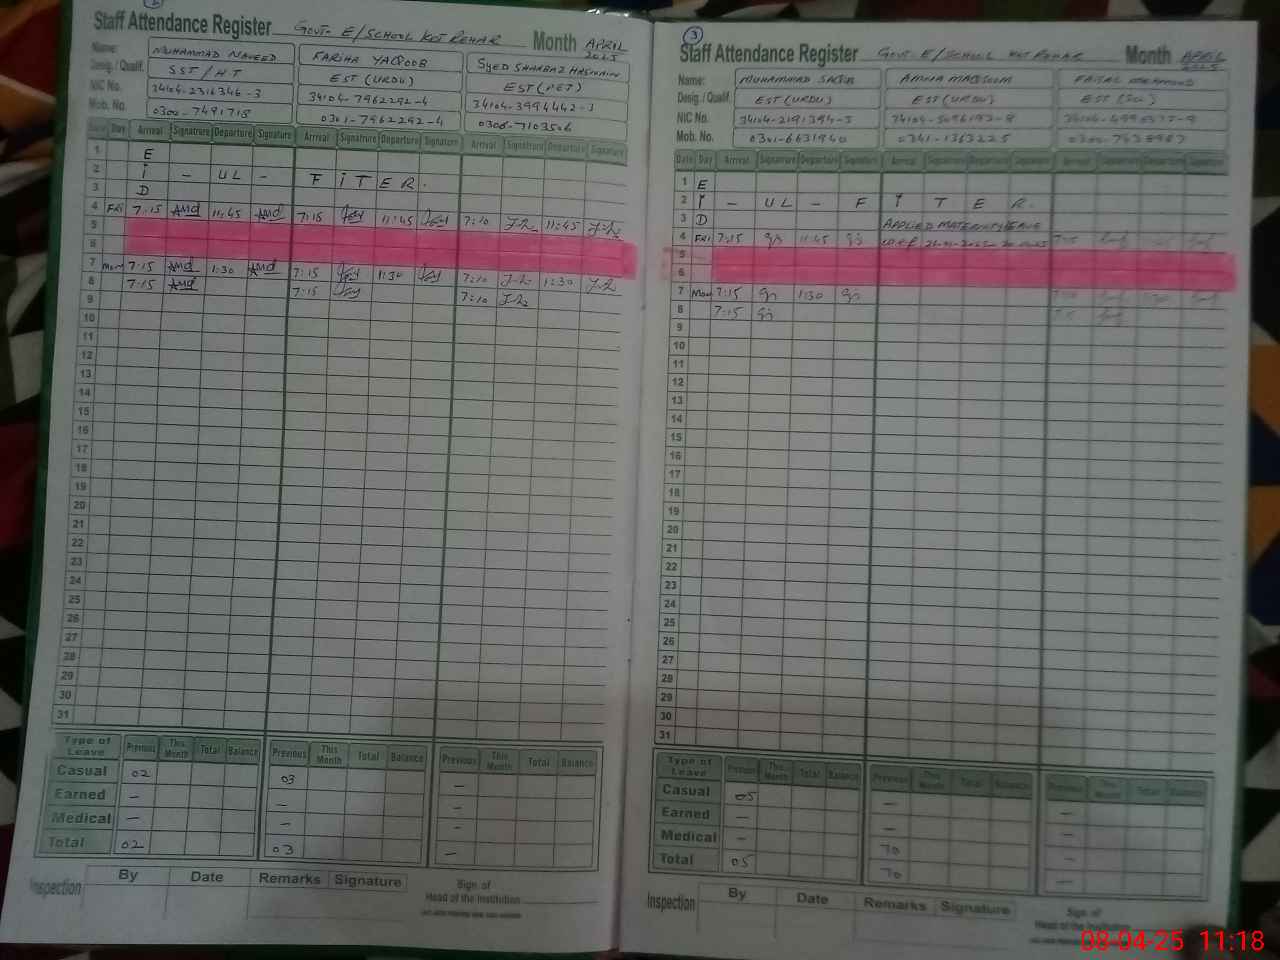 Staff Attendance Register GOVT- E/SCHOOL KOT REHAR Month APRIL 2025
Name: MUHAMMAD NAVEED FARIHA YAQOOB SYED SHAHBAZ HASNAIN
Desig. / Qualif. SST/HT EST (URDU) EST (PET)
NIC No. 34104-2316346-3 34104-7962292-4 34104-3994442-3
Mob. No. 0300-7491718 0301-7962292-4 0306-7103506
Date Day Arrival Signature Departure Signature Arrival Signature Departure Signature Arrival Signature Departure Signature
1 E
2 i - UL - F I T E R.
3 D
4 FRi 7:15 11:45 7:15 11:45 7:10 11:45
5
6
7 Mon 7:15 1:30 7:15 1:30 7:10 1:30
8 7:15 7:15 7:10
9
10
11
12
13
14
15
16
17
18
19
20
21
22
23
24
25
26
27
28
29
30
31
Type of Leave Previous This Month Total Balance Previous This Month Total Balance Previous This Month Total Balance
Casual 02 03 -
Earned - - -
Medical - -
Total 02 03 -
Inspection By Date Remarks Signature Sign. of
Head of the Institution
3
Staff Attendance Register GOVT- E/SCHOOL KOT REHAR Month APRIL 2025
Name: MUHAMMAD AMNA MAQSOOM FAISAL MEHMOOD
Desig. / Qualif. EST (URDU) EST (URDU) EST (SCI)
NIC No. 34104-2191394-3
Mob. No. 0341-6631940 0341-1363225
Date Day Arrival Signature Departure Signature Arrival Signature Departure Signature Arrival Signature Departure Signature
1 E
2 i - UL - F I T E R.
3 D APPLIED MATERNITY LEAVE
4 FRi 7:15 11:45 w.e.f
5
6
7 Mon 7:15 1:30
8 7:15 7:15
9
10
11
12
13
14
15
16
17
18
19
20
21
22
23
24
25
26
27
28
29
30
31
Type of Leave Previous This Month Total Balance Previous This Month Total Balance Previous This Month Total Balance
Casual 05 - -
Earned - - -
Medical - 70 -
Total 05 70 -
Inspection By Date Remarks Signature Sign. of
Head of the Institution
08-04-25 11:18